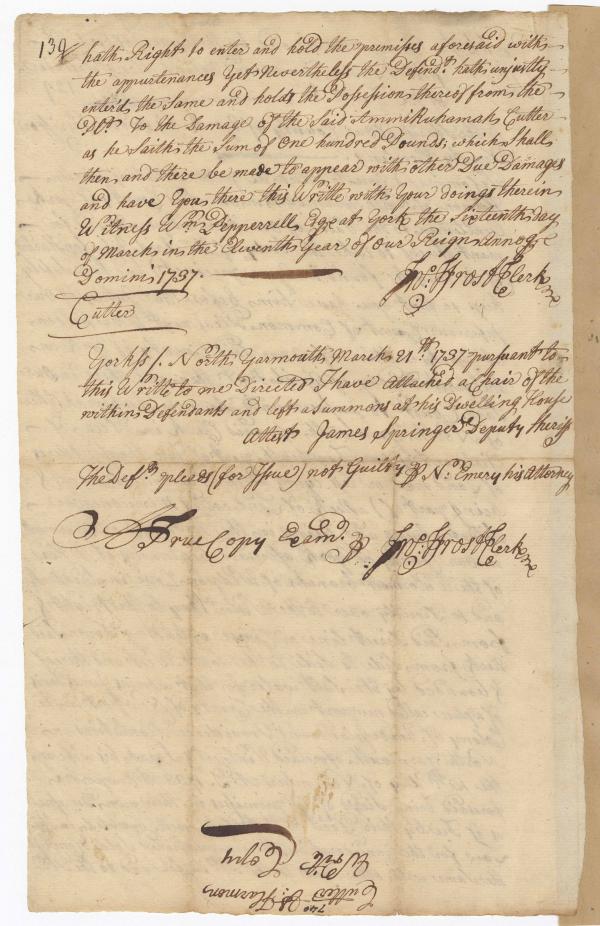 139
hath Right to enter and hold the premisses aforesaid with
the appurtenances Yet Nevertheless the Defend.t hath unjustly
enter'd the Same and holds the Possession thereof from the
Plt. To the Damage of the Said Ammi Ruhamah Cutter
as he Saith the Sum of One hundred Pounds; which Shall
then and there be made to appear with other Due Damages
and have You there this Writte with Your doings therein
Witness W.m Pepperrell Esq.r at York the Sixteenth day
of March in the Eleventh Year of Our Reign Annoq.e
Domini 1737.
Jno. Frost Clerk
Cutter
York ss/. North Yarmouth March 21.st 1737 pursuant to
this Writte to me Directed I have Attached a Chair of the
within Defendants and left a Summons at his Dwelling House
Attest James Springer Deputy Sheriff
The Def.t pleads (for Issue) not Guilty P N. Emery his Attorney
A True Copy Exam.d P Jno. Frost Clerk
Cutter vs. Harmon
Writt
Copy